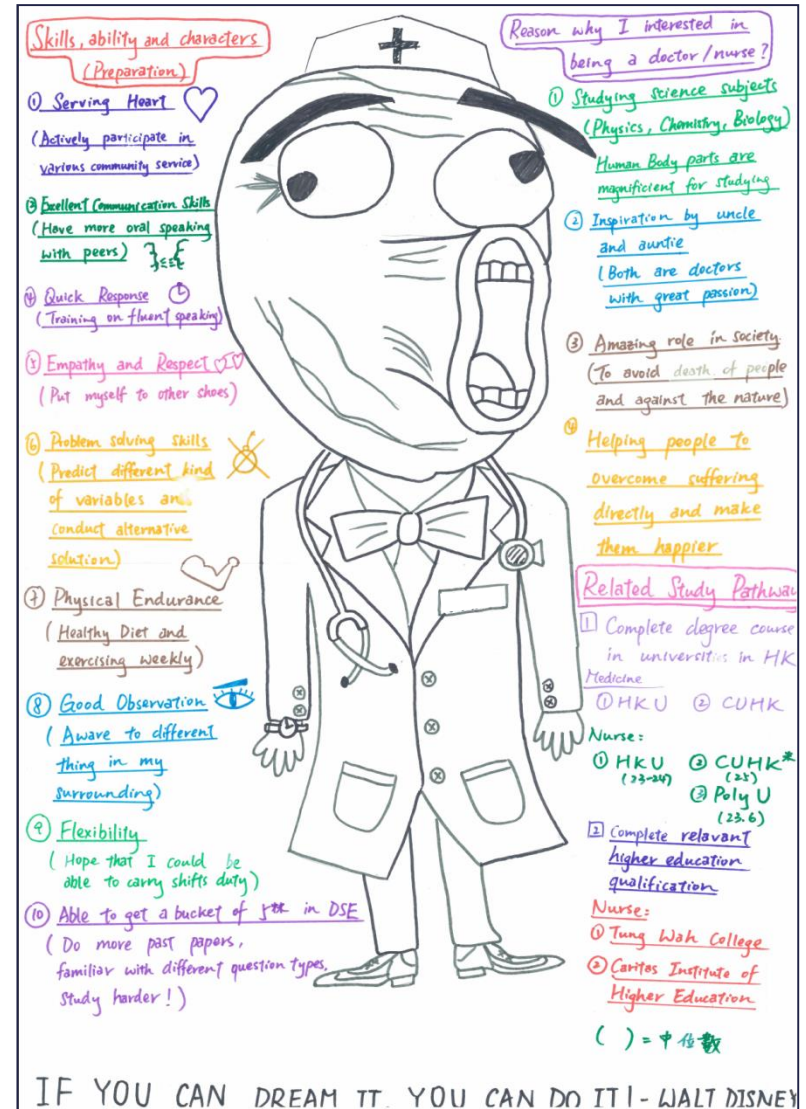 Skills, ability and characters
(Preparation)
① Serving Heart
(Actively participate in
various community service)
③ Exellent Communication Skills
(Have more oral speaking
with peers)
④ Quick Response
(Training on fluent speaking)
⑤ Empathy and Respect
(Put myself to other shoes)
⑥ Problem solving skills
(Predict different kind
of variables and
conduct alternative
solution)
⑦ Physical Endurance
(Healthy Diet and
exercising weekly)
⑧ Good Observation
(Aware to different
thing in my
surrounding)
⑨ Flexibility
(Hope that I could be
able to carry shifts duty)
⑩ Able to get a bucket of 5** in DSE
(Do more past papers,
familiar with different question types,
Study harder!)
Reason why I interested in
being a doctor/nurse?
① Studying science subjects
(Physics, Chemistry, Biology)
Human Body parts are
magnificient for studying
② Inspiration by uncle
and auntie
(Both are doctors
with great passion)
③ Amazing role in society
(To avoid death of people
and against the nature)
④ Helping people to
overcome suffering
directly and make
them happier
Related Study Pathway
1 Complete degree course
in universities in HK
Medicine
① HKU ② CUHK
Nurse:
① HKU ② CUHK*
(23-24) (25)
③ Poly U
(23.6)
2 Complete relavant
higher education
qualification
Nurse:
① Tung Wah College
② Caritas Institute of
Higher Education
( ) = 中位數
IF YOU CAN DREAM IT, YOU CAN DO IT! - WALT DISNEY